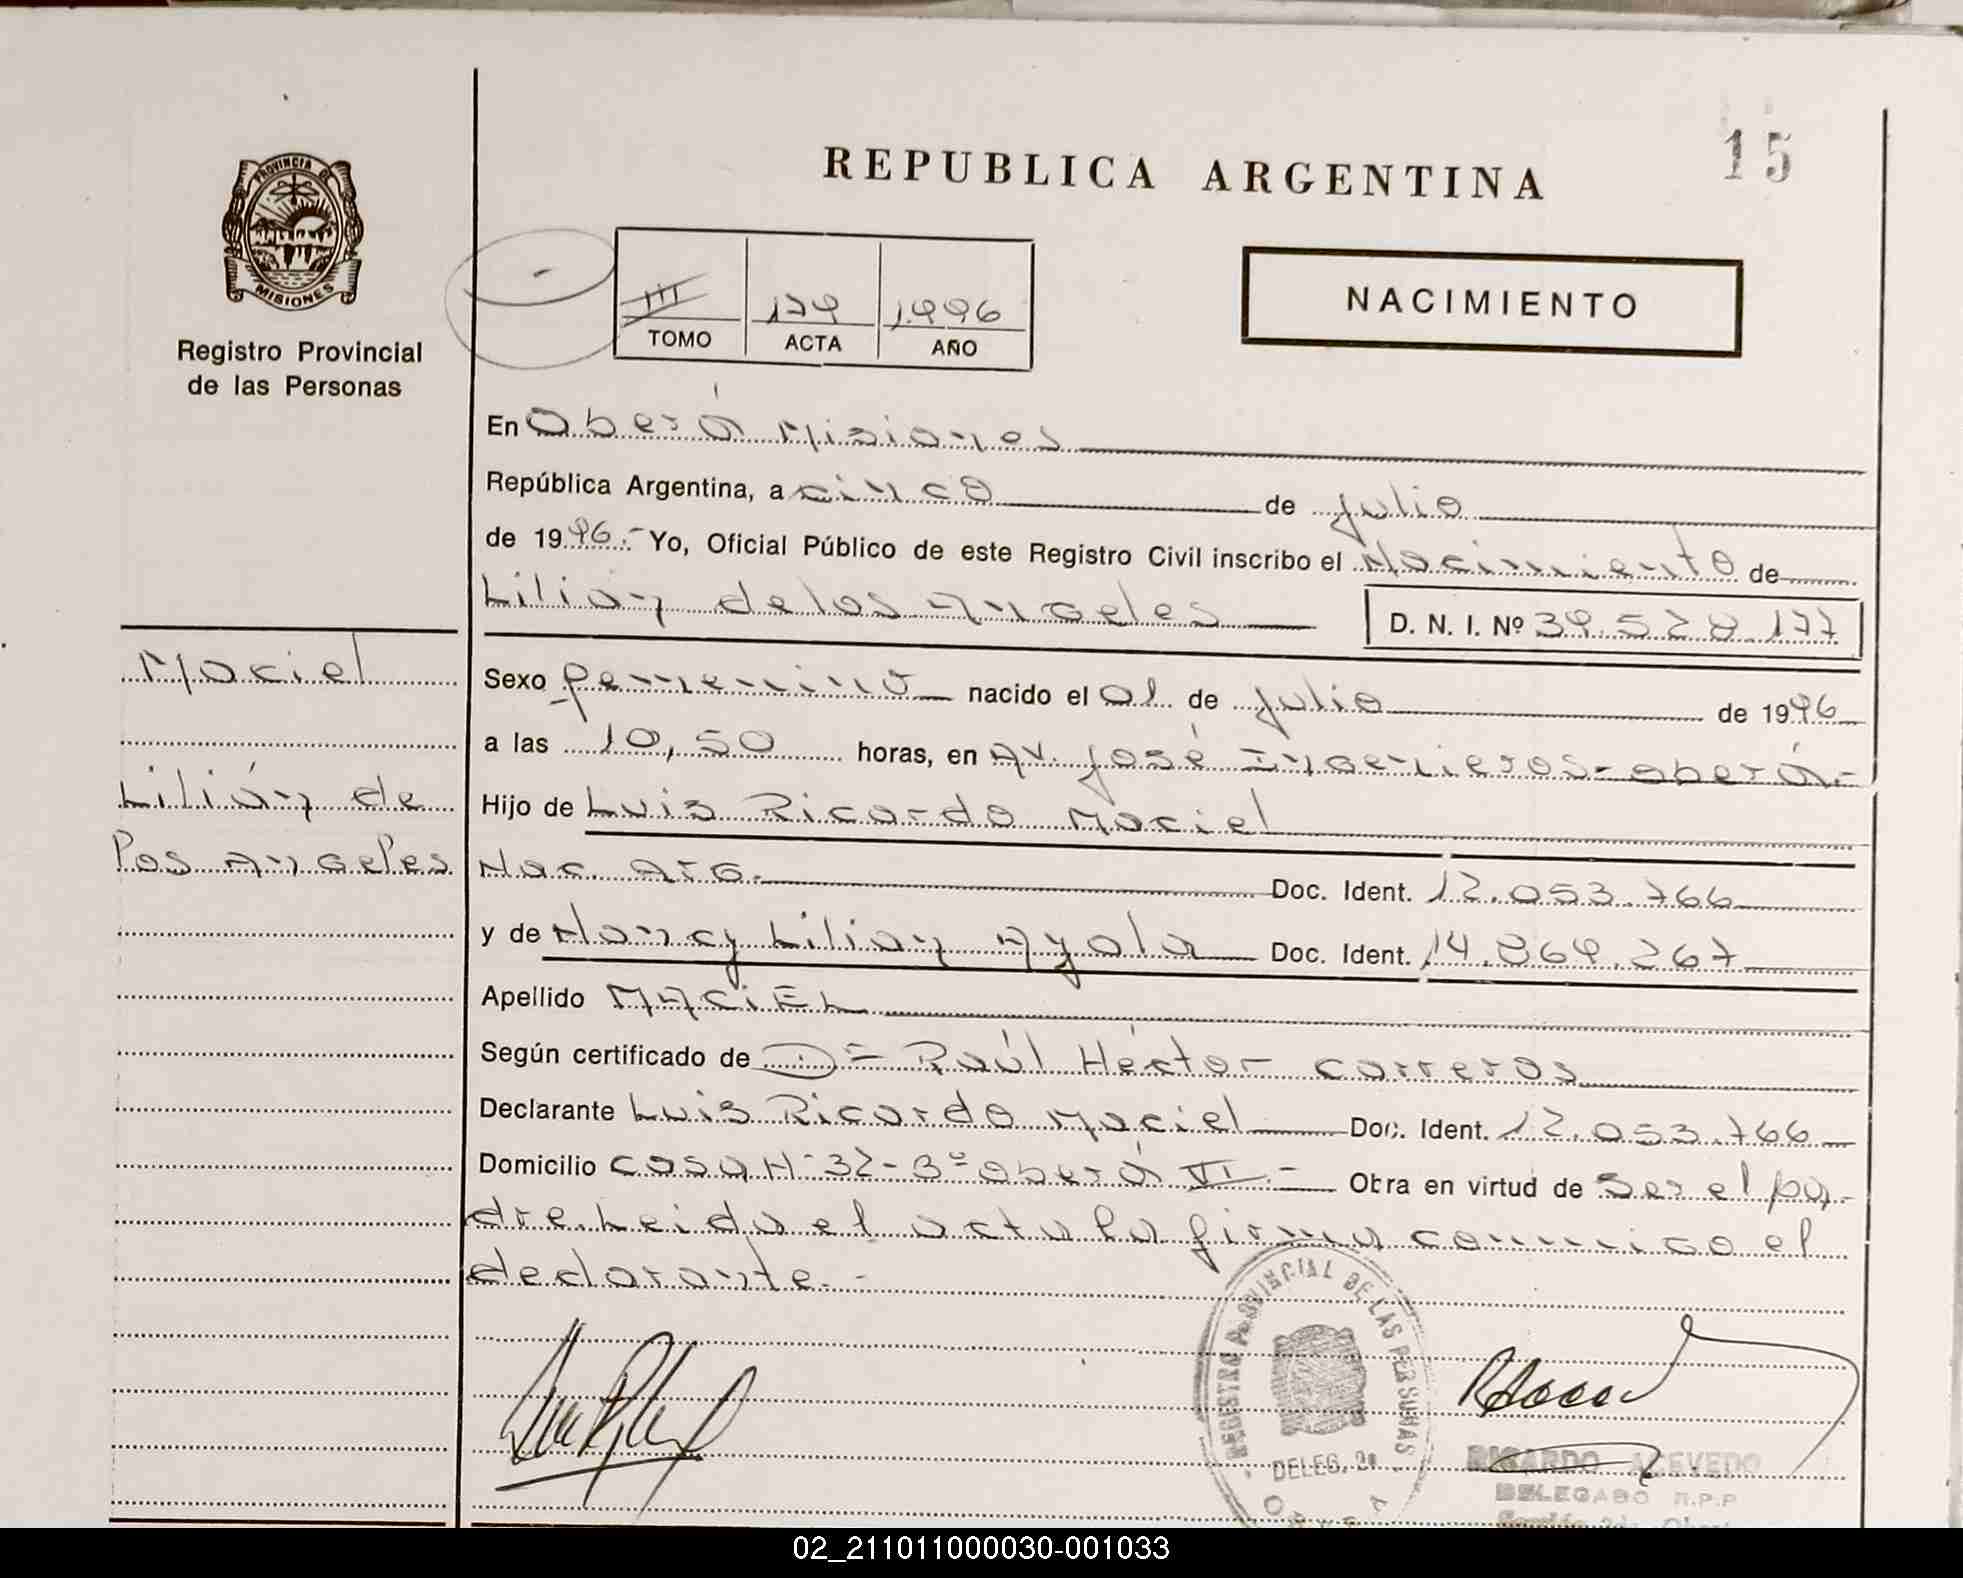 15
REPUBLICA ARGENTINA
PROVINCIA DE
MISIONES
Registro Provincial
de las Personas
III 179 1.996
TOMO ACTA AÑO
NACIMIENTO
En Oberá Misiones
República Argentina, a cinco de julio
de 1996.- Yo, Oficial Público de este Registro Civil inscribo el Nacimiento de
Lilián de los Angeles D. N. I. Nº 39.528.177
Maciel
Lilián de
los Angeles
Sexo femenino nacido el 01 de julio de 1996
a las 10,50 horas, en Av. José Ingenieros-oberá.-
Hijo de Luis Ricardo Maciel
Nac. Arg. Doc. Ident. 12.053.766
y de Nancy Lilian Ayala Doc. Ident. 14.869.267
Apellido MACIEL
Según certificado de D= Raúl Héctor Carreras
Declarante Luis Ricardo Maciel Doc. Ident. 12.053.766
Domicilio casa N-32-Bº oberá VI.- Obra en virtud de Ser el pa-
dre.Leida el acta la firma conmigo el
declarante.-
REGISTRO PROVINCIAL DE LAS PERSONAS
DELEG. 2a
RICARDO ACEVEDO
DELEGADO R.P.P
02_211011000030-001033